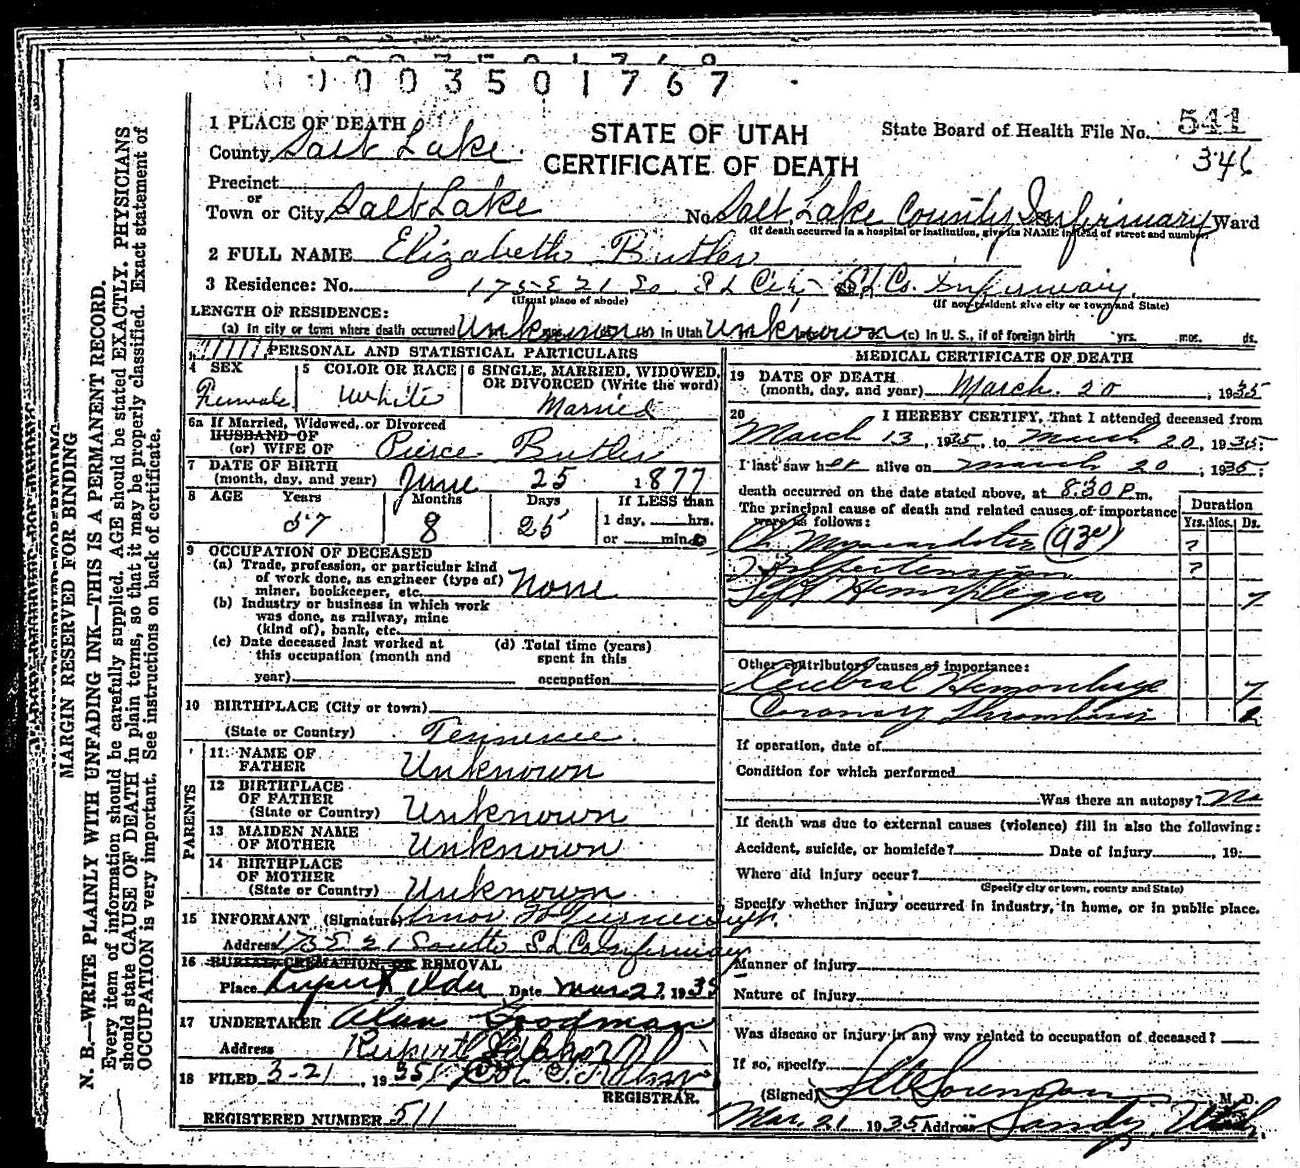 0003501767
1 PLACE OF DEATH
STATE OF UTAH
CERTIFICATE OF DEATH
State Board of Health File No. 541
346
County Salt Lake.
Precinct
or
Town or City Salt Lake No. Salt Lake County Infirmary Ward
(If death occurred in a hospital or institution, give its NAME instead of street and number)
2 FULL NAME Elizabeth Butler
3 Residence: No. 175 E 21 So. S L City - S L Co. Infirmary.
(Usual place of abode) (If non-resident give city or town and State)
LENGTH OF RESIDENCE:
(a) In city or town where death occurred Unknown (b) In Utah Unknown (c) In U. S., if of foreign birth yrs. mos. ds.
PERSONAL AND STATISTICAL PARTICULARS
4 SEX Female
5 COLOR OR RACE White
6 SINGLE, MARRIED, WIDOWED, OR DIVORCED (Write the word) Married
6a If Married, Widowed, or Divorced
HUSBAND OF
(or) WIFE OF Pierce Butler
7 DATE OF BIRTH
(month, day, and year) June 25 1877
8 AGE Years Months Days If LESS than
57 8 25 1 day, hrs.
or min.
9 OCCUPATION OF DECEASED
(a) Trade, profession, or particular kind
of work done, as engineer (type of)
miner, bookkeeper, etc. None
(b) Industry or business in which work
was done, as railway, mine
(kind of), bank, etc.
(c) Date deceased last worked at
this occupation (month and
year)
(d) Total time (years)
spent in this
occupation
10 BIRTHPLACE (City or town)
(State or Country) Tennessee.
PARENTS
11 NAME OF
FATHER Unknown
12 BIRTHPLACE
OF FATHER
(State or Country) Unknown
13 MAIDEN NAME
OF MOTHER Unknown
14 BIRTHPLACE
OF MOTHER
(State or Country) Unknown
15 INFORMANT (Signature)
Address 175 E 21 South S L Co Infirmary
16 BURIAL, CREMATION, OR REMOVAL
Place Rupert Ida Date Mar 22, 1935
17 UNDERTAKER Alan Goodman
Address Rupert
18 FILED 3-21, 1935
REGISTRAR.
REGISTERED NUMBER 511
MEDICAL CERTIFICATE OF DEATH
19 DATE OF DEATH
(month, day, and year) March. 20, 1935
20 I HEREBY CERTIFY, That I attended deceased from
March 13, 1935, to March 20, 1935.
I last saw her alive on March 20, 1935;
death occurred on the date stated above, at 8:30 P.m.
The principal cause of death and related causes of importance
were as follows:
Duration
Yrs. Mos. Ds.
Ch Myocarditis (93c) ?
Hypertension ?
Left Hemiplegia 7
Other contributory causes of importance:
Cerebral Hemorrhage 7
Coronary Thrombosis
If operation, date of
Condition for which performed
Was there an autopsy? No
If death was due to external causes (violence) fill in also the following:
Accident, suicide, or homicide? Date of injury , 19
Where did injury occur?
(Specify city or town, county and State)
Specify whether injury occurred in industry, in home, or in public place.
Manner of injury
Nature of injury
Was disease or injury in any way related to occupation of deceased?
If so, specify
(Signed) Sorenson M. D.
Mar. 21 1935 Address Sandy, Utah.
MARGIN RESERVED FOR BINDING
N. B.—WRITE PLAINLY WITH UNFADING INK—THIS IS A PERMANENT RECORD.
Every item of information should be carefully supplied. AGE should be stated EXACTLY. PHYSICIANS
should state CAUSE OF DEATH in plain terms, so that it may be properly classified. Exact statement of
OCCUPATION is very important. See instructions on back of certificate.